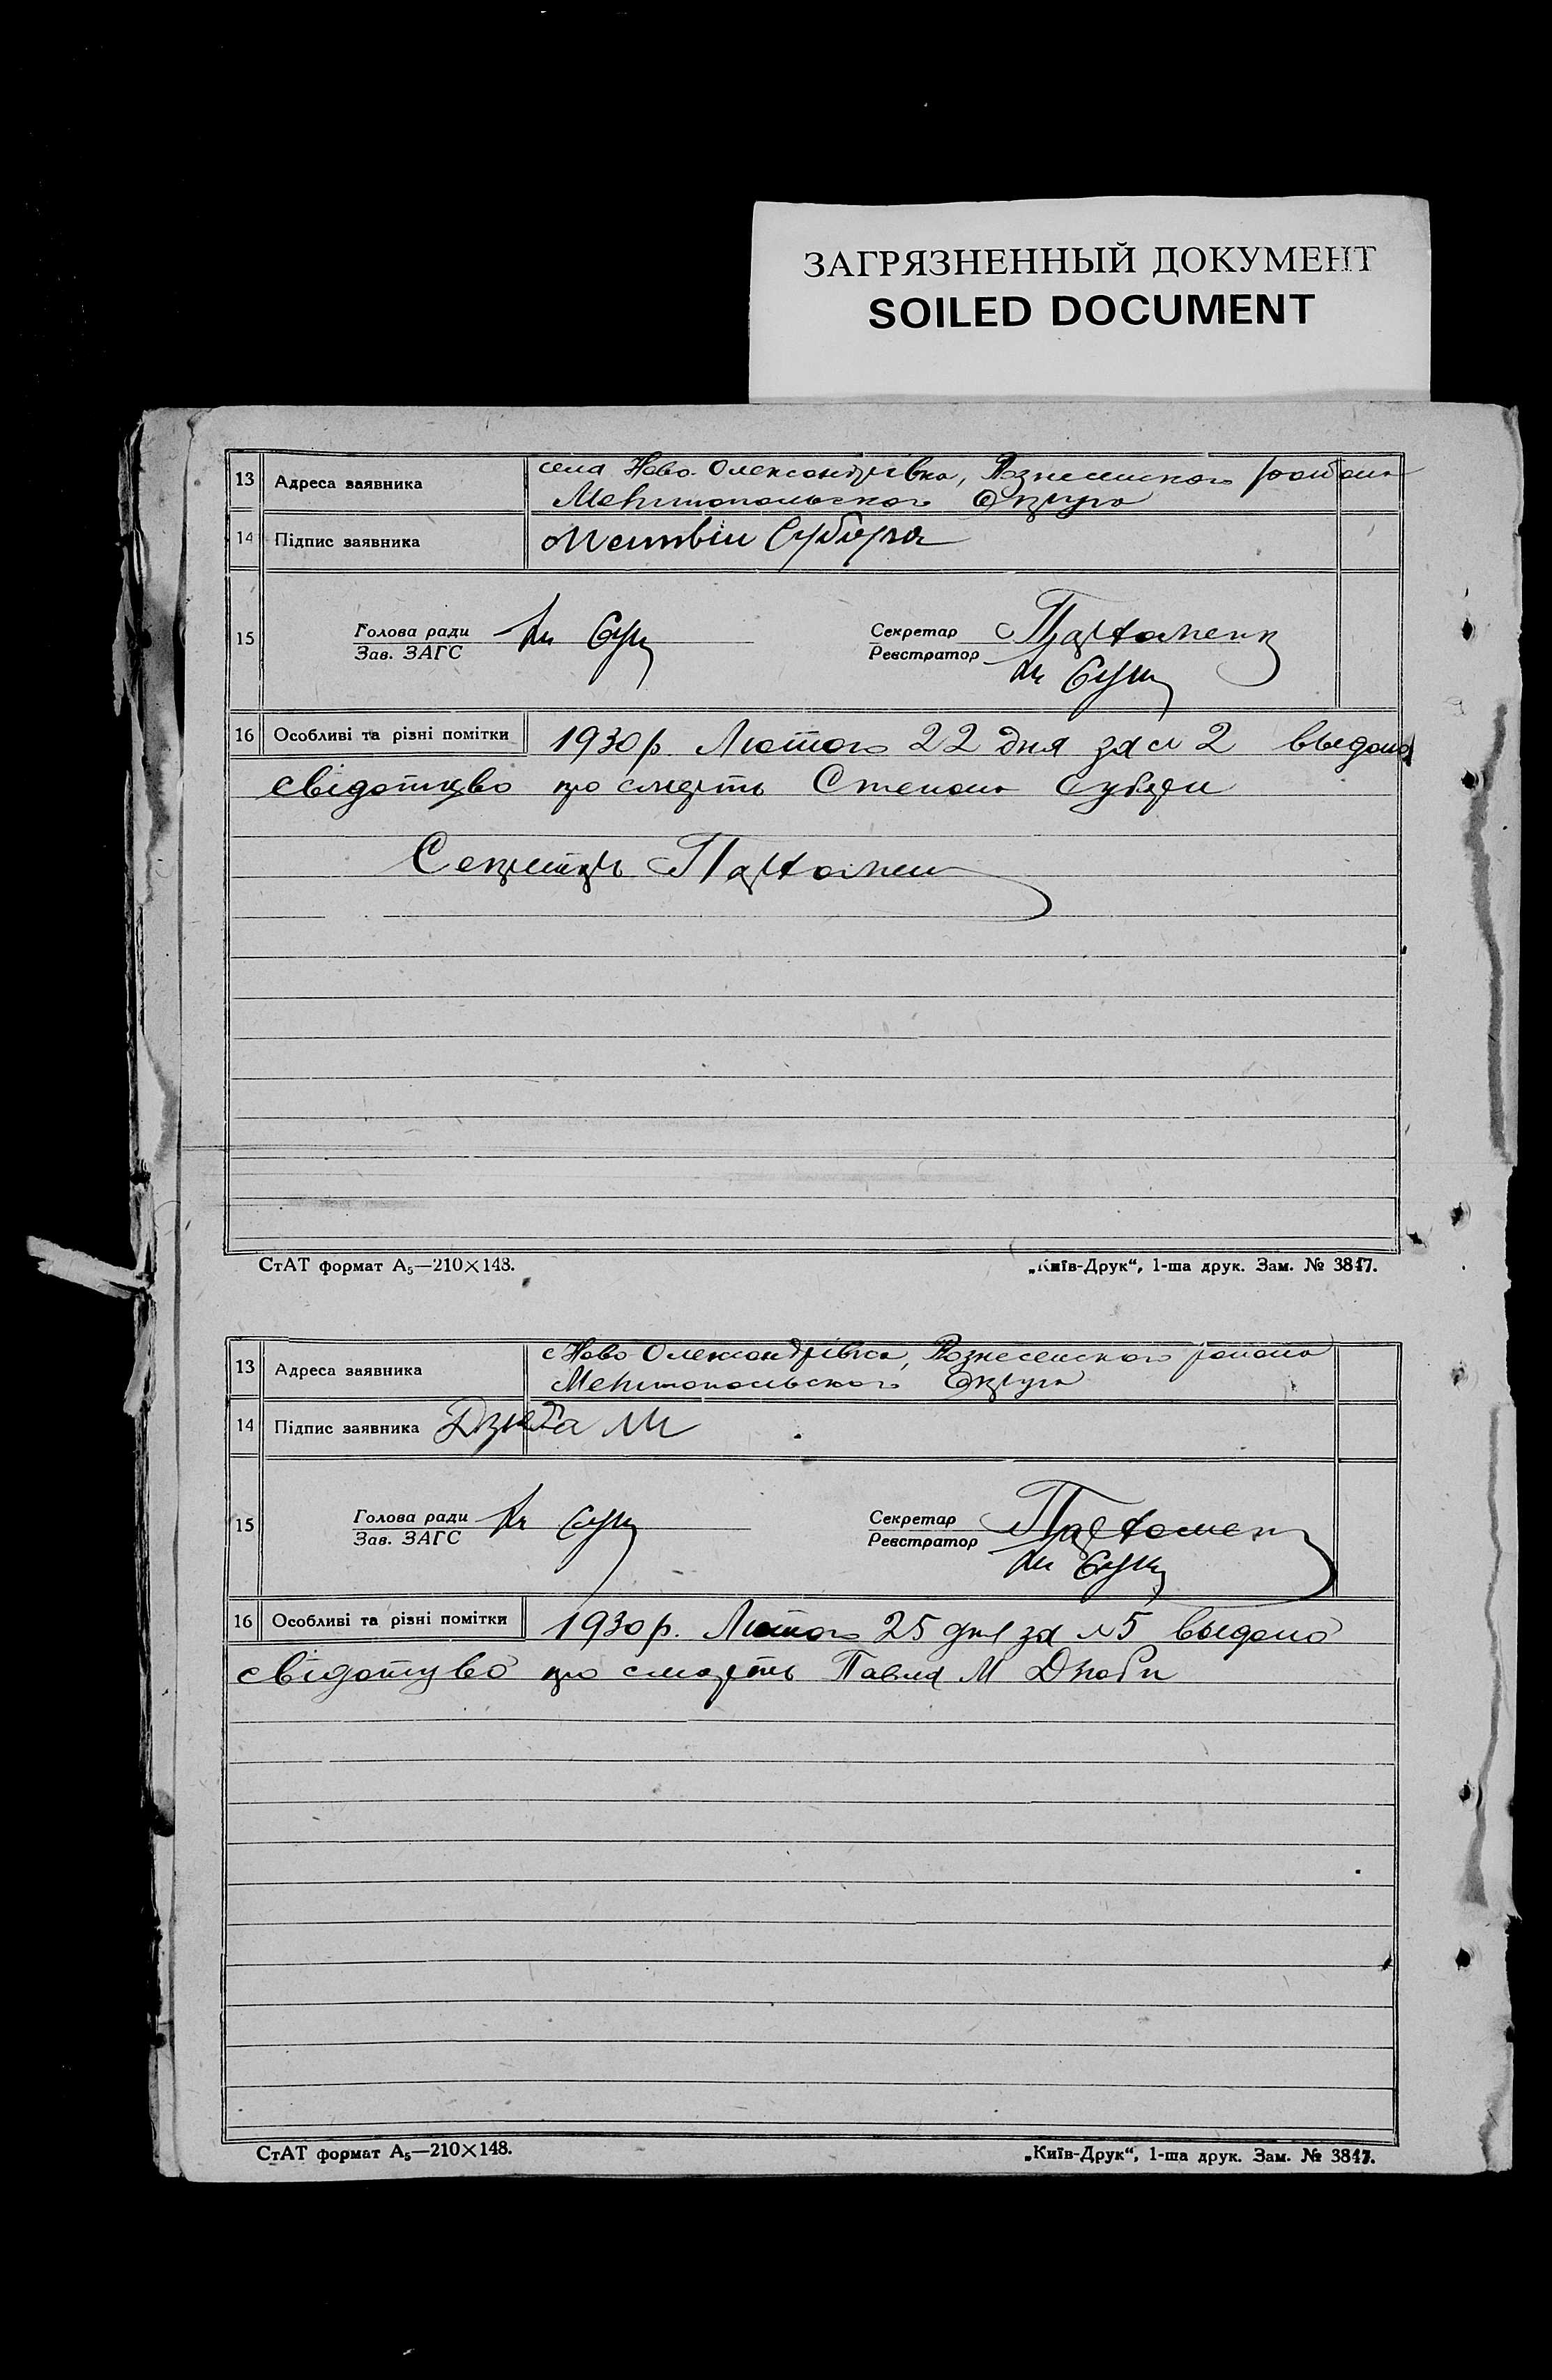 ЗАГРЯЗНЕННЫЙ ДОКУМЕНТ
SOILED DOCUMENT
13 Адреса заявника села Ново-Олександрівка, Вознесенского района
Мелитопольского Округа
14 Підпис заявника Матвій
15 Голова ради Секретар
Зав. ЗАГС Реєстратор
16 Особливі та різні помітки 1930 р. Лютого 22 дня за № 2 выдано
свідотцво про смерть Степана
Секретарь
СтАТ формат А₅—210×148. „Київ-Друк“, 1-ша друк. Зам. № 3847.
13 Адреса заявника с Ново Олександрівка, Вознесенского района
Мелитопольского Округа
14 Підпис заявника Дзюба М
15 Голова ради Секретар
Зав. ЗАГС Реєстратор
16 Особливі та різні помітки 1930 р. Лютого 25 дня за № 5 выдано
свідотцво про смерть Павла М Дзюби
СтАТ формат А₅—210×148. „Київ-Друк“, 1-ша друк. Зам. № 3847.